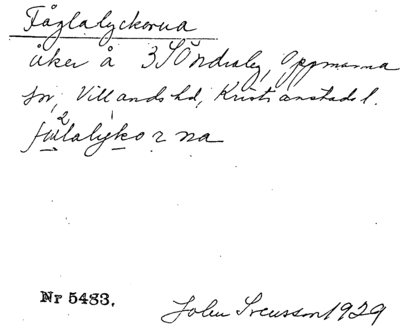 Fåglalyckorna
åker å 3 Söndraby, Oppmanna
sn, Villands hd, Kristianstads l.
2
fúlalykorna
Nr 5483.
John Svensson 1929